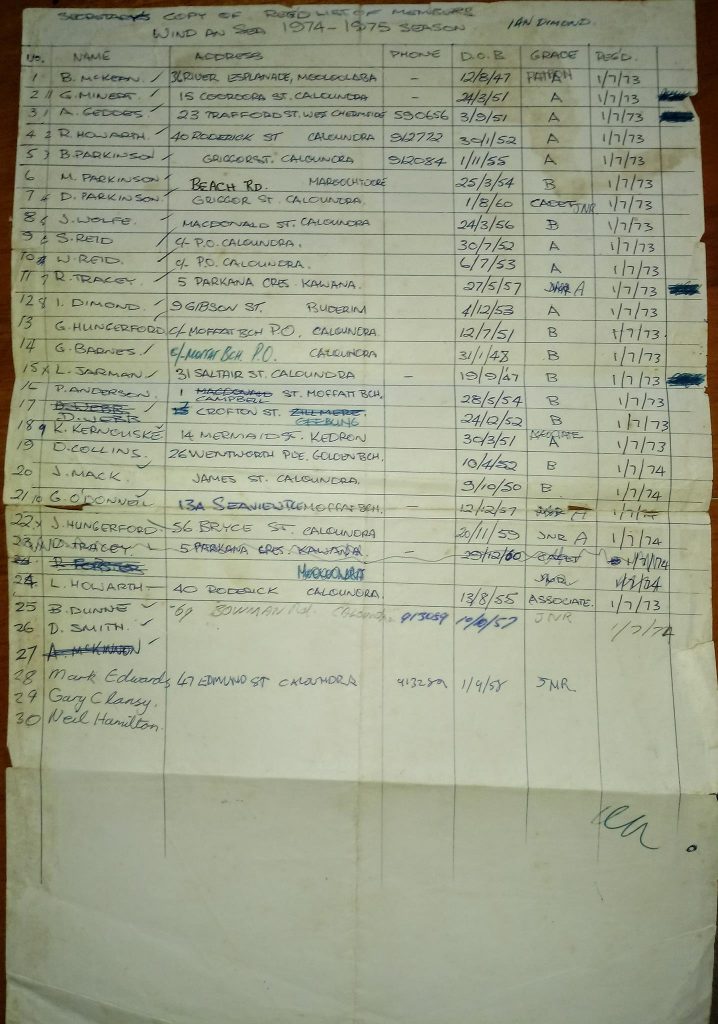 SECRETARY'S COPY OF REG'D LIST OF MEMBERS
WIND AN SEA 1974-1975 SEASON IAN DIMOND.
NO. NAME ADDRESS PHONE D.O.B GRADE REG'D.
1 B. McKEAN 36 RIVER ESPLANADE, MOOLOOLABA - 12/8/47 PATRON 1/7/73
2 11 G. MINERT 15 COOROORA ST. CALOUNDRA - 24/3/51 A 1/7/73
3 1 A. GEDDES 23 TRAFFORD ST, WEST CHERMSIDE 590656 3/9/51 A 1/7/73
4 2 R. HOWARTH 40 RODERICK ST CALOUNDRA 912772 30/1/52 A 1/7/73
5 3 B. PARKINSON GRIGOR ST. CALOUNDRA 912084 1/11/55 A 1/7/73
6 M. PARKINSON BEACH RD. MAROOCHYDORE 25/3/54 B 1/7/73
7 4 D. PARKINSON GRIGOR ST. CALOUNDRA. 1/8/60 CADET JNR 1/7/73
8 J. WOLFE MACDONALD ST. CALOUNDRA 24/3/56 B 1/7/73
9 S. REID c/- P.O. CALOUNDRA. 30/7/52 A 1/7/73
10 W. REID. c/- P.O. CALOUNDRA. 6/7/53 A 1/7/73
11 7 R. TRACEY 5 PARKANA CRES. KAWANA. 27/5/57 JNR A 1/7/73
12 8 I. DIMOND 9 GIBSON ST. BUDERIM 4/12/53 A 1/7/73
13 G. HUNGERFORD c/- MOFFAT BCH P.O. CALOUNDRA. 12/7/51 B 1/7/73
14 G. BARNES c/- MOFFAT BCH P.O. CALOUNDRA 31/1/48 B 1/7/73
15 x L. JARMAN 31 SALTAIR ST. CALOUNDRA - 19/9/47 B 1/7/73
16 P. ANDERSON 1 MACDONALD CAMPBELL ST. MOFFAT BCH. 28/5/54 B 1/7/73
17 B. WEBB D. WEBB 15 CROFTON ST. ZILLMERE GEEBUNG 24/12/52 B 1/7/73
18 9 K. KERNOUSKE 14 MERMAID ST. KEDRON 30/3/51 ASSOCIATE A 1/7/73
19 D. COLLINS. 26 WENTWORTH PDE, GOLDEN BCH. 10/4/52 B 1/7/74
20 J. MACK. JAMES ST. CALOUNDRA. 9/10/50 B 1/7/74
21 10 G. O'DONNELL 13A SEAVIEW TRE MOFFAT BCH. - 12/12/57 JNR A 1/7/74
22 x J. HUNGERFORD 56 BRYCE ST. CALOUNDRA 20/11/59 JNR A 1/7/74
23 D. TRACEY 5 PARKANA CRES. KAWANA 29/12/60 CADET 1/7/74
24 R. FORSTER MOOLOOLABA JNR 1/7/74
24 L. HOWARTH 40 RODERICK CALOUNDRA. 13/8/55 ASSOCIATE. 1/7/73
25 B. DUNNE 69 BOWMAN Rd. CALOUNDRA 913489 10/10/57 JNR
26 D. SMITH. 1/7/74
27 A. McKINNON
28 Mark Edwards 47 EDMUND ST CALOUNDRA 913289 1/9/58 JNR
29 Gary Clansy.
30 Neil Hamilton.